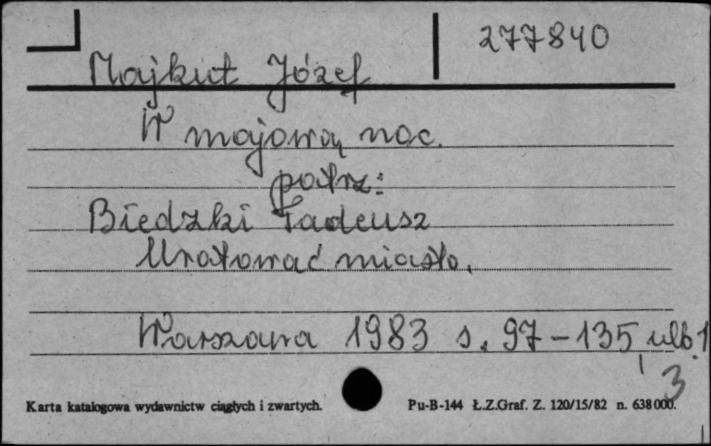 277840
Majkut Józef
W majową noc.
patrz:
Biedzki Tadeusz
Uratować miasto.
Warszawa 1983 s. 97-135, nlb. 1
3
Karta katalogowa wydawnictw ciągłych i zwartych. Pu-B-144 Ł.Z.Graf. Z. 120/15/82 n. 638 000.